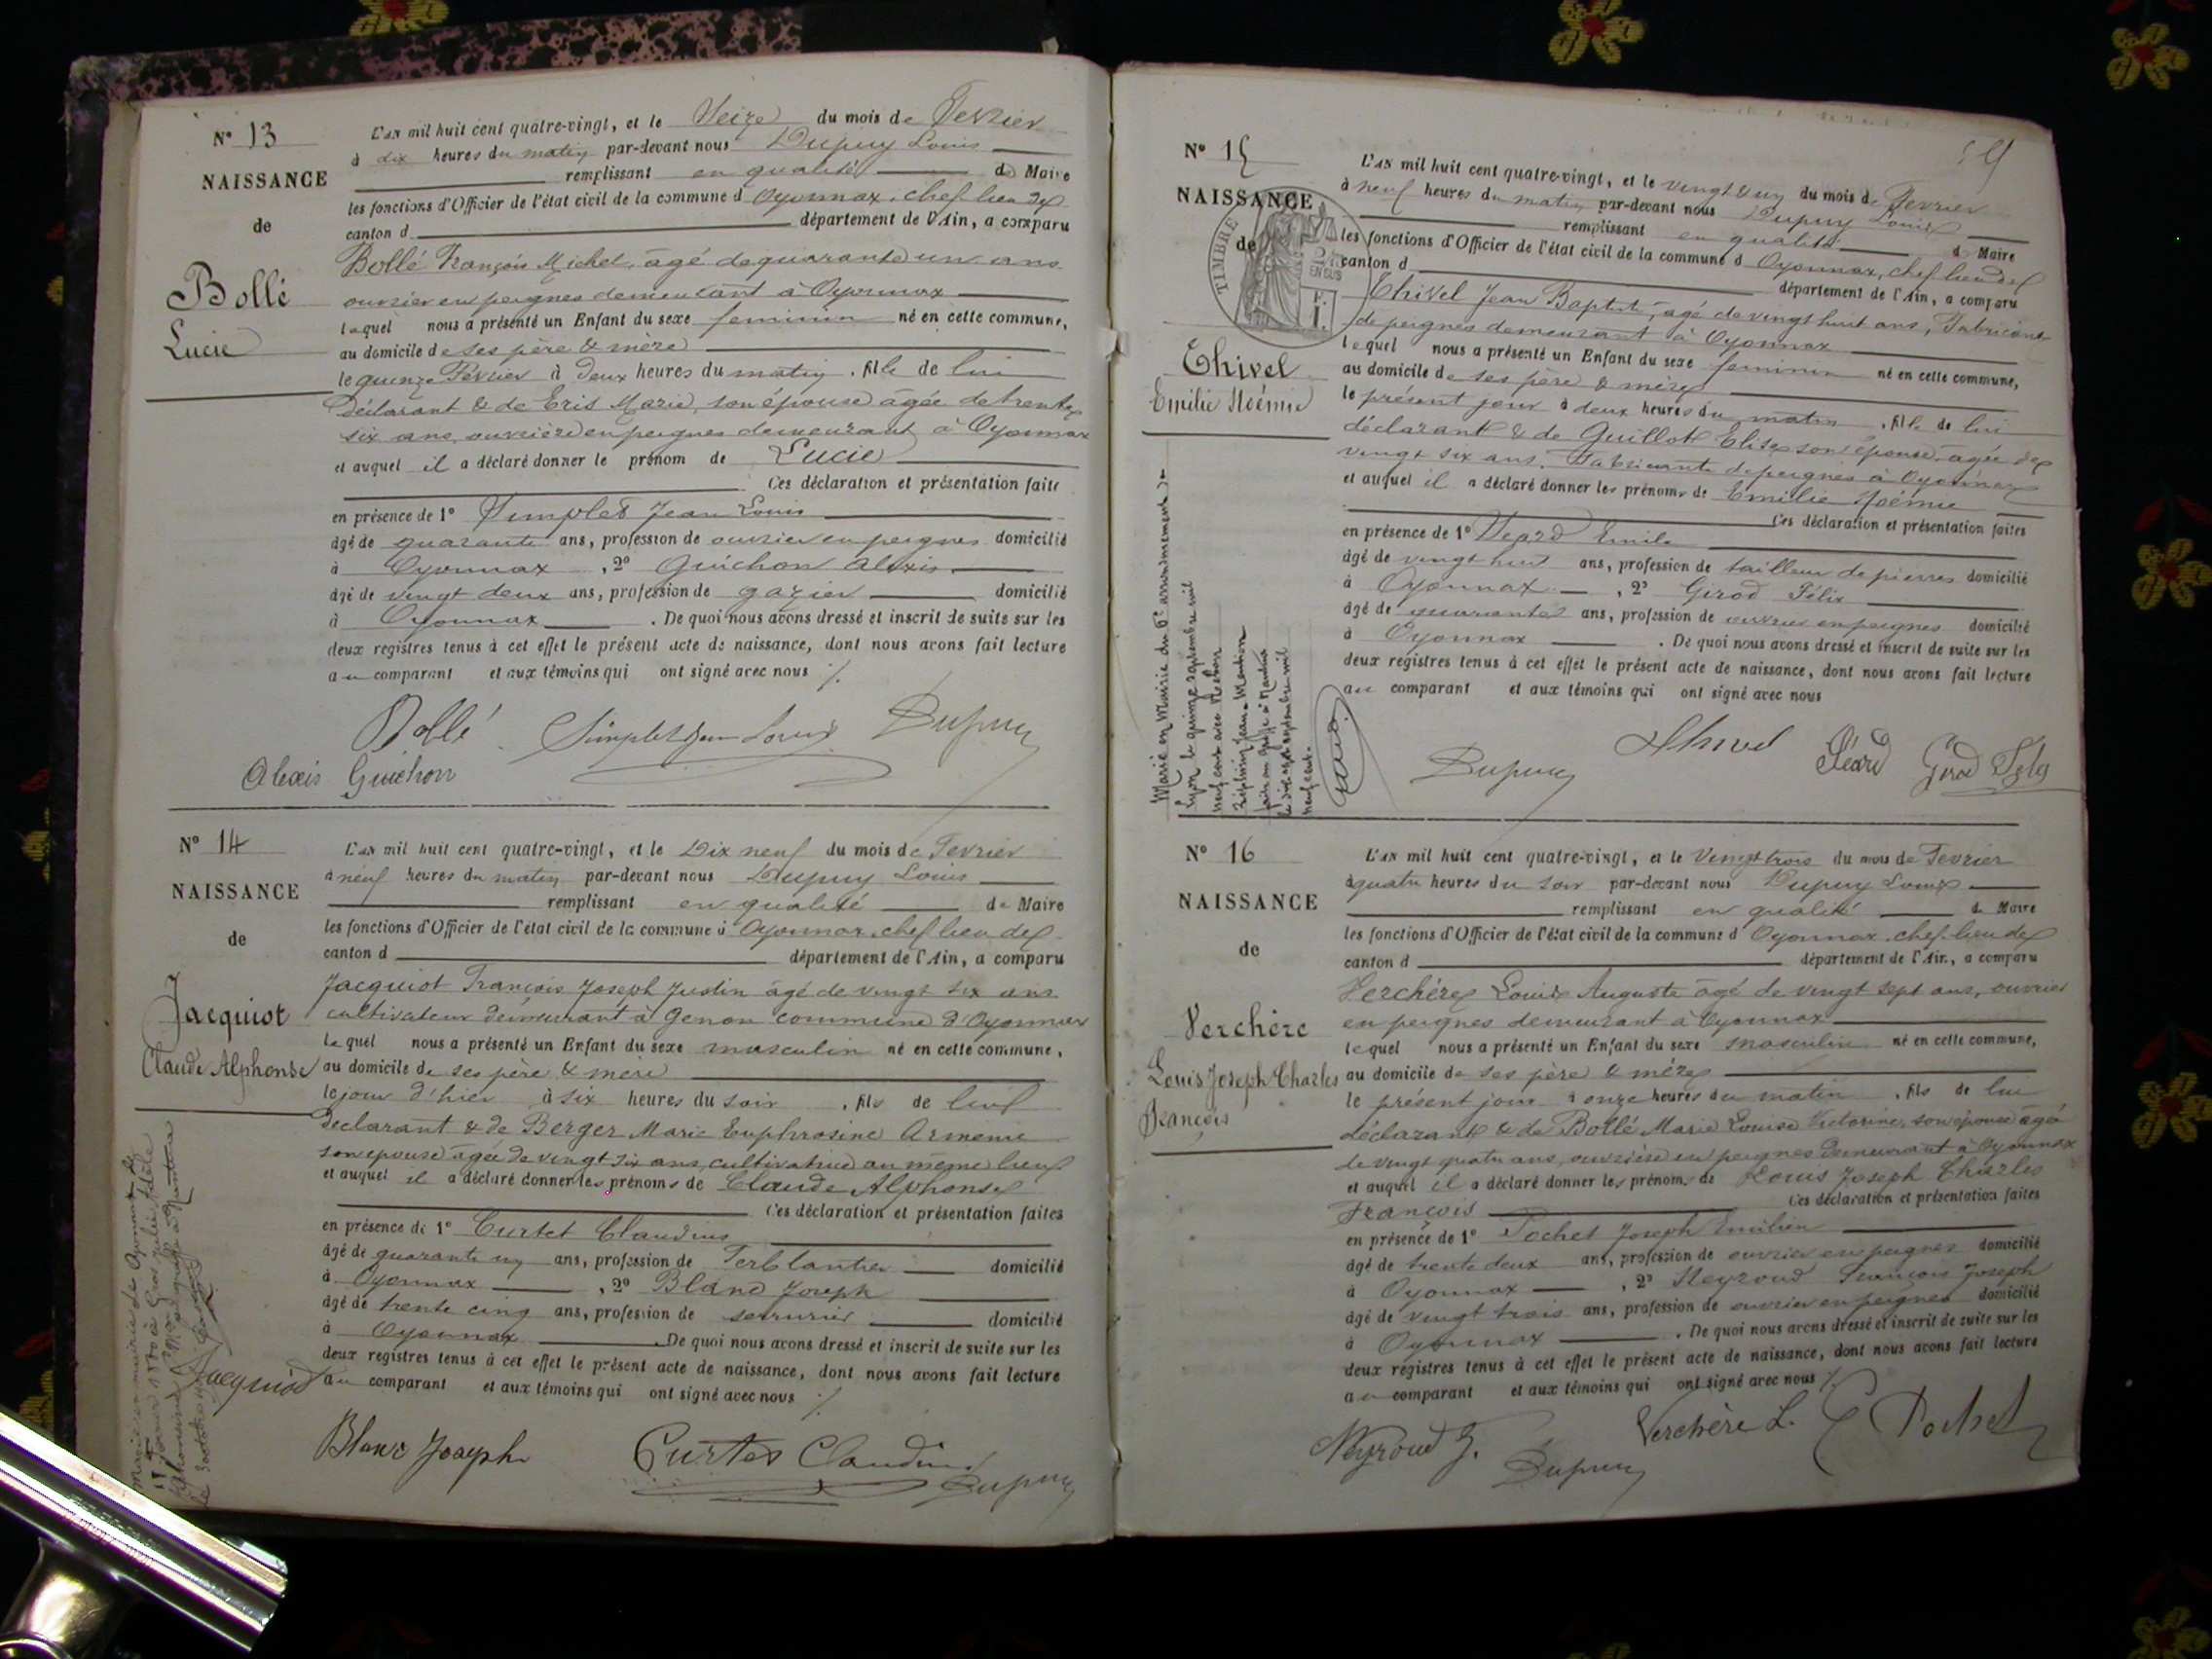 N° 13
NAISSANCE
de
Bollé
Lucie
L'an mil huit cent quatre-vingt, et le Seize du mois de Fevrier
à dix heures du matin par-devant nous Dupuy Louis
remplissant en qualité de Maire
les fonctions d'Officier de l'état civil de la commune d Oyonnax, chef lieu de
canton d département de l'Ain, a comparu
Bollé François Michel, agé de quarante un ans
ouvrier en peignes demeurant à Oyonnax
lequel nous a présenté un Enfant du sexe feminin né en cette commune,
au domicile de ses père & mère
le quinze Février à deux heures du matin, fille de lui
déclarant & de Eris Marie, son épouse agée de trente
six ans, ouvrière en peignes demeurant à Oyonnax
et auquel il a déclaré donner le prénom de Lucie
Ces déclaration et présentation faite
en présence de 1° Simplet Jean Louis
âgé de quarante ans, profession de ouvrier en peignes domicilié
à Oyonnax, 2° Guichon Alexis
âgé de vingt deux ans, profession de gazier domicilié
à Oyonnax. De quoi nous avons dressé et inscrit de suite sur les
deux registres tenus à cet effet le présent acte de naissance, dont nous avons fait lecture
au comparant et aux témoins qui ont signé avec nous
Bollé Simplet Jean Louis Dupuy
Alexis Guichon
N° 14
NAISSANCE
de
Jacquiot
Claude Alphonse
L'an mil huit cent quatre-vingt, et le Dix neuf du mois de Fevrier
à neuf heures du matin par-devant nous Dupuy Louis
remplissant en qualité de Maire
les fonctions d'Officier de l'état civil de la commune d Oyonnax, chef lieu de
canton d département de l'Ain, a comparu
Jacquiot François Joseph Justin âgé de vingt six ans
cultivateur demeurant à Genon commune d'Oyonnax
lequel nous a présenté un Enfant du sexe masculin né en cette commune,
au domicile de ses père & mère
le jour d'hier à six heures du soir, fils de lui
declarant & de Berger Marie Euphrosine Armenie
son epouse agée de vingt six ans, cultivatrice au même lieu
et auquel il a déclaré donner les prénoms de Claude Alphonse
Ces déclaration et présentation faites
en présence de 1° Curtet Claudius
âgé de quarante un ans, profession de Ferblantier domicilié
à Oyonnax, 2° Blanc Joseph
âgé de trente cinq ans, profession de serrurier domicilié
à Oyonnax. De quoi nous avons dressé et inscrit de suite sur les
deux registres tenus à cet effet le présent acte de naissance, dont nous avons fait lecture
au comparant et aux témoins qui ont signé avec nous
Jacquiot
Blanc Joseph Curtet Claudius Dupuy
N° 15
NAISSANCE
de
TIMBRE
Thivel
Emilie Noémie
L'an mil huit cent quatre-vingt, et le vingt & un du mois de Fevrier
à neuf heures du matin par-devant nous Dupuy Louis
remplissant en qualité de Maire
les fonctions d'Officier de l'état civil de la commune d Oyonnax, chef lieu de
canton d département de l'Ain, a comparu
Thivel Jean Baptiste, agé de vingt huit ans, Fabricant
de peignes demeurant à Oyonnax
lequel nous a présenté un Enfant du sexe feminin né en cette commune,
au domicile de ses père & mère
le présent jour à deux heures du matin, fille de lui
déclarant & de Guillot Elise son épouse, agée de
vingt six ans. Fabricante de peignes à Oyonnax
et auquel il a déclaré donner les prénoms de Emilie Noémie
Ces déclaration et présentation faites
en présence de 1° Péard Emile
âgé de vingt huit ans, profession de tailleur de pierres domicilié
à Oyonnax, 2° Girod Félix
âgé de quarante ans, profession de ouvrier en peignes domicilié
à Oyonnax. De quoi nous avons dressé et inscrit de suite sur les
deux registres tenus à cet effet le présent acte de naissance, dont nous avons fait lecture
au comparant et aux témoins qui ont signé avec nous
Thivel Péard Girod Félix
Dupuy
Marié en Mairie du 6e arrondissement de
Lyon le quinze septembre mil
neuf cent
N° 16
NAISSANCE
de
Verchère
Louis Joseph Charles
François
L'an mil huit cent quatre-vingt, et le Vingt trois du mois de Fevrier
à quatre heures du soir par-devant nous Dupuy Louis
remplissant en qualité de Maire
les fonctions d'Officier de l'état civil de la commune d Oyonnax, chef lieu de
canton d département de l'Ain, a comparu
Verchère Louis Auguste âgé de vingt sept ans, ouvrier
en peignes demeurant à Oyonnax
lequel nous a présenté un Enfant du sexe masculin né en cette commune,
au domicile de ses père & mère
le présent jour à onze heures du matin, fils de lui
déclarant & de Bollé Marie Louise Victorine, son épouse âgée
de vingt quatre ans, ouvrière en peignes demeurant à Oyonnax
et auquel il a déclaré donner les prénoms de Louis Joseph Charles
François Ces déclaration et présentation faites
en présence de 1° Pochet Joseph Emilien
âgé de trente deux ans, profession de ouvrier en peignes domicilié
à Oyonnax, 2° Neyroud François Joseph
âgé de vingt trois ans, profession de ouvrier en peignes domicilié
à Oyonnax. De quoi nous avons dressé et inscrit de suite sur les
deux registres tenus à cet effet le présent acte de naissance, dont nous avons fait lecture
au comparant et aux témoins qui ont signé avec nous
Neyroud F. Verchère L. E Pochet
Dupuy